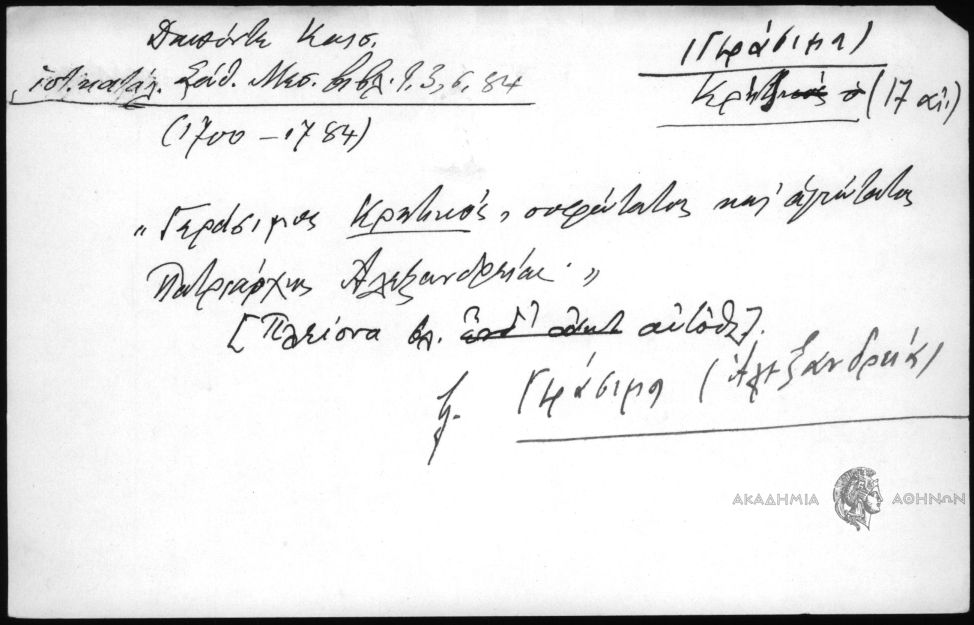 Δαπόντε Κωσ.
ἱστ. κατάλ. Σάθ. Μεσ. βιβλ. τ. 3, σ. 84
(1700 – 1784)
Γεράσιμος
Κρητικός (17 αἰ.)
„Γεράσιμος Κρητικός, σοφώτατος καὶ ἁγιώτατος
Πατριάρχης Ἀλεξανδρείας."
[Πλείονα βλ. αὐτόθι].
Γεράσιμος (Ἀλεξανδρείας)
ΑΚΑΔΗΜΙΑ ΑΘΗΝΩΝ